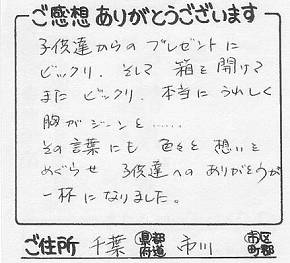 ご感想ありがとうございます
子供達からのプレゼントに
ビックリ、そして箱を開けて
またビックリ、本当にうれしく
胸がジーンと……
その言葉にも色々と想いを
めぐらせ子供達へのありがとうが
一杯になりました。
ご住所 千葉 県都府道 市川 市区町郡